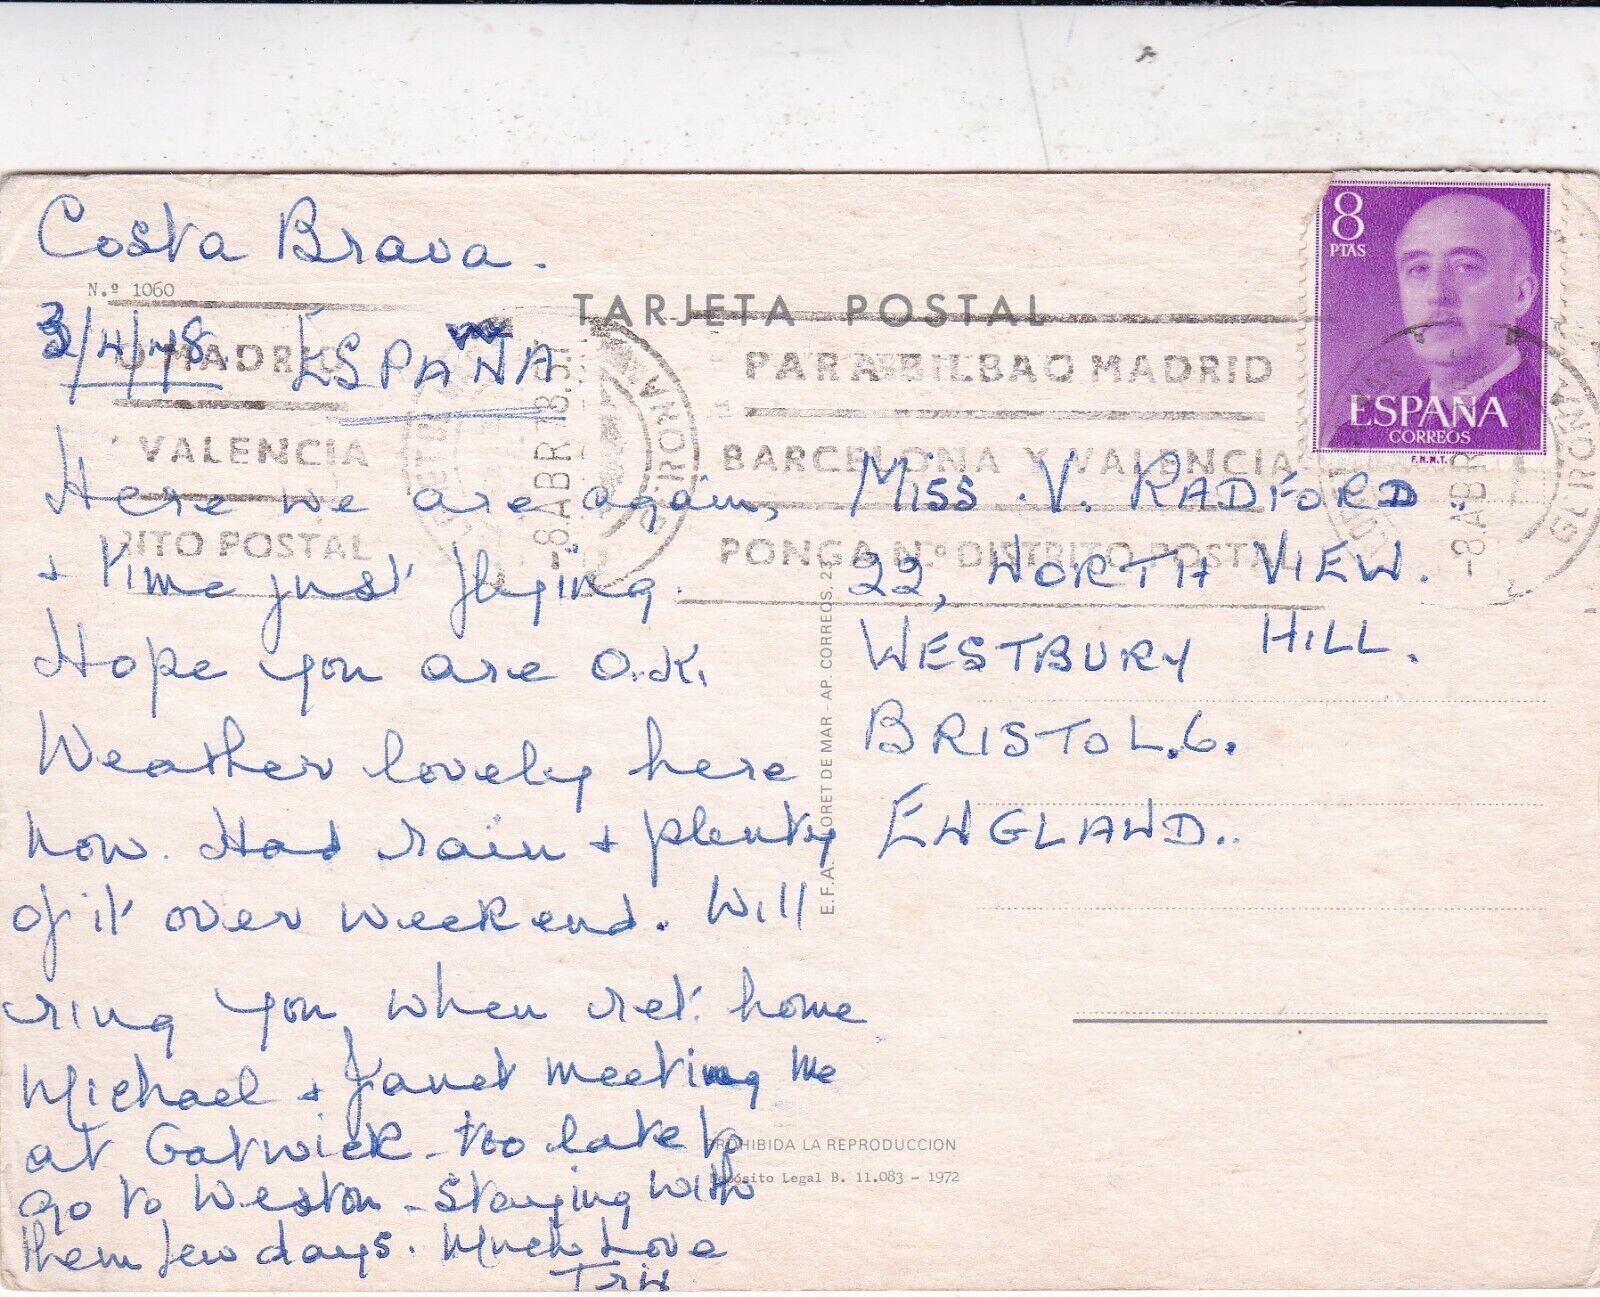 Costa Brava.
N.º 1060
3/4/78. ESPAÑA
Here we are again,
+ time just flying.
Hope you are O.K.
Weather lovely here
now. Had rain + plenty
of it over weekend. Will
ring you when ret. home
Michael + Janet meeting me
at Gatwick - too late to
go to Weston - staying with
them few days. Much Love
Trix
TARJETA POSTAL
O MADRID
VALENCIA
RITO POSTAL
8 ABR 78
GERONA
PARA BILBAO MADRID
BARCELONA Y VALENCIA
PONGA N.º DISTRITO POSTAL
8 ABR
GERONA
8
PTAS
ESPAÑA
CORREOS
F.N.M.T.
MISS. V. RADFORD.
22, NORTH VIEW.
WESTBURY HILL.
BRISTOL.6.
ENGLAND..
E.F.A. LORET DE MAR - AP. CORREOS, 23
PROHIBIDA LA REPRODUCCION
Depósito Legal B. 11.083 - 1972